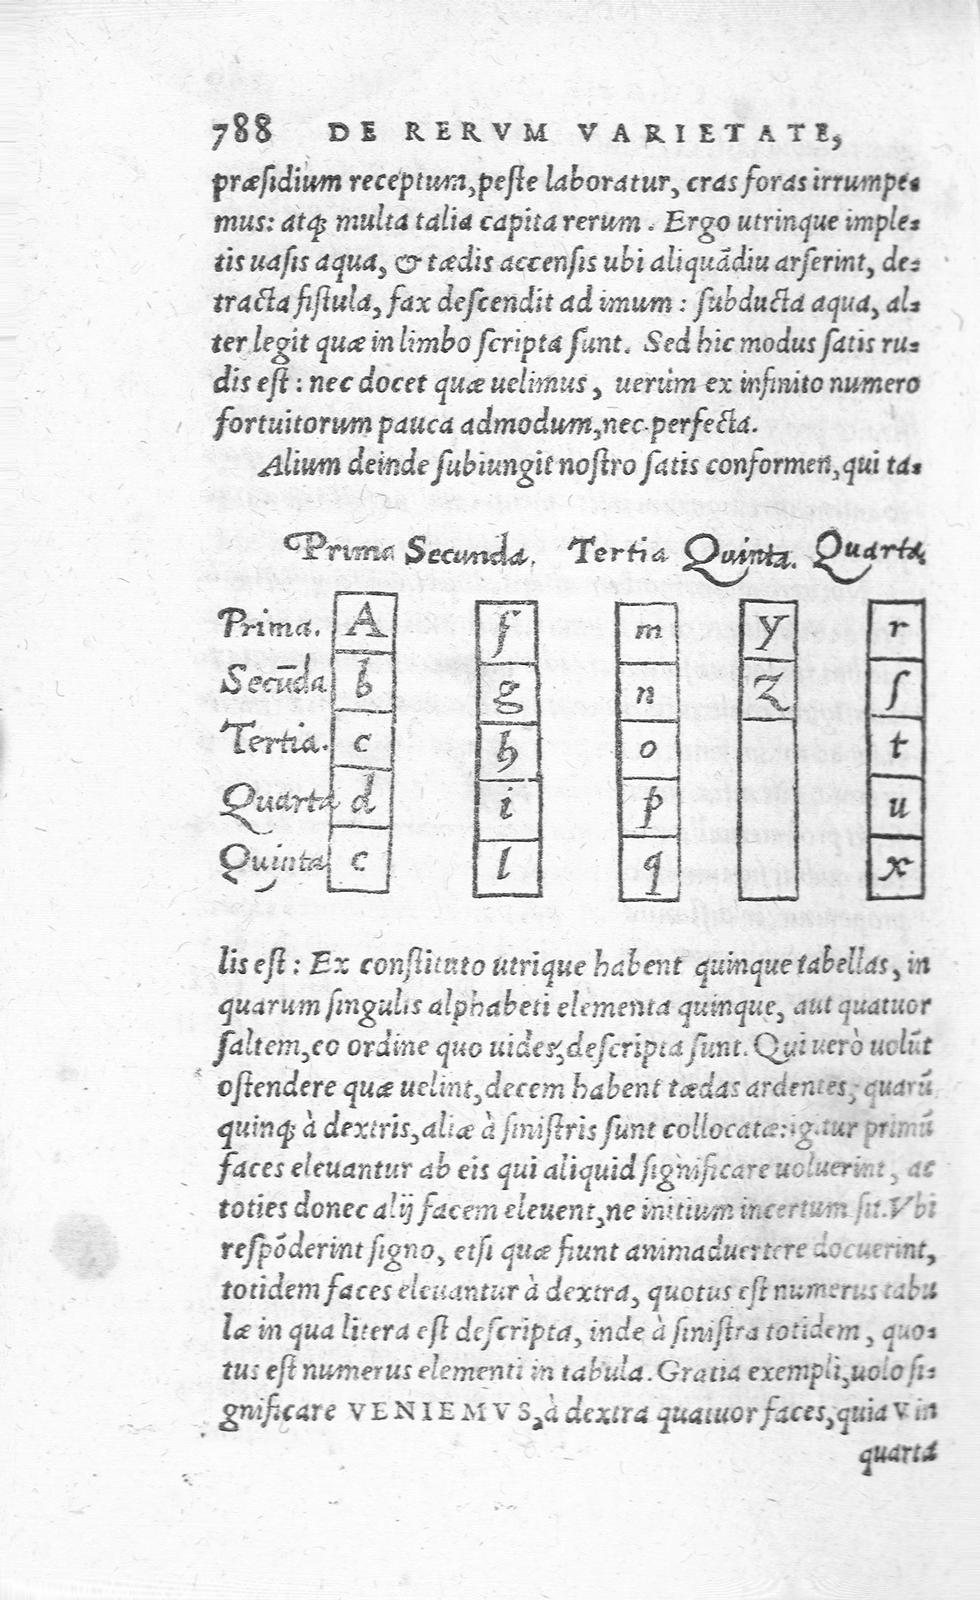 788 DE RERVM VARIETATE,
præſidium receptum, peſte laboratur, cras foras irrumpe⸗
mus: atq; multa talia capita rerum. Ergo utrinque imple⸗
tis uaſis aqua, & tædis accenſis ubi aliquādiu arſerint, de⸗
tracta fiſtula, fax deſcendit ad imum: ſubducta aqua, al⸗
ter legit quæ in limbo ſcripta ſunt. Sed hic modus ſatis ru⸗
dis eſt: nec docet quæ uelimus, uerùm ex infinito numero
fortuitorum pauca admodum, nec perfecta.
Alium deinde ſubiungit noſtro ſatis conformen, qui ta⸗
Prima Secunda. Tertia Quinta. Quarta.
Prima. A f m y r
Secūda b g n z ſ
Tertia. c h o t
Quarta d i p u
Quinta c l q x
lis eſt: Ex conſtituto utrique habent quinque tabellas, in
quarum ſingulis alphabeti elementa quinque, aut quatuor
ſaltem, eo ordine quo uides, deſcripta ſunt. Qui uerò uolūt
oſtendere quæ uelint, decem habent tædas ardentes, quarū
quinq; à dextris, aliæ à ſiniſtris ſunt collocatæ: igitur primū
faces eleuantur ab eis qui aliquid ſignificare uoluerint, ac
toties donec alij facem eleuent, ne initium incertum ſit. Vbi
reſpōderint ſigno, etſi quæ fiunt animaduertere docuerint,
totidem faces eleuantur à dextra, quotus eſt numerus tabu
læ in qua litera eſt deſcripta, inde à ſiniſtra totidem, quo⸗
tus eſt numerus elementi in tabula. Gratia exempli, uolo ſi⸗
gnificare VENIEMVS, à dextra quatuor faces, quia V in
quarta